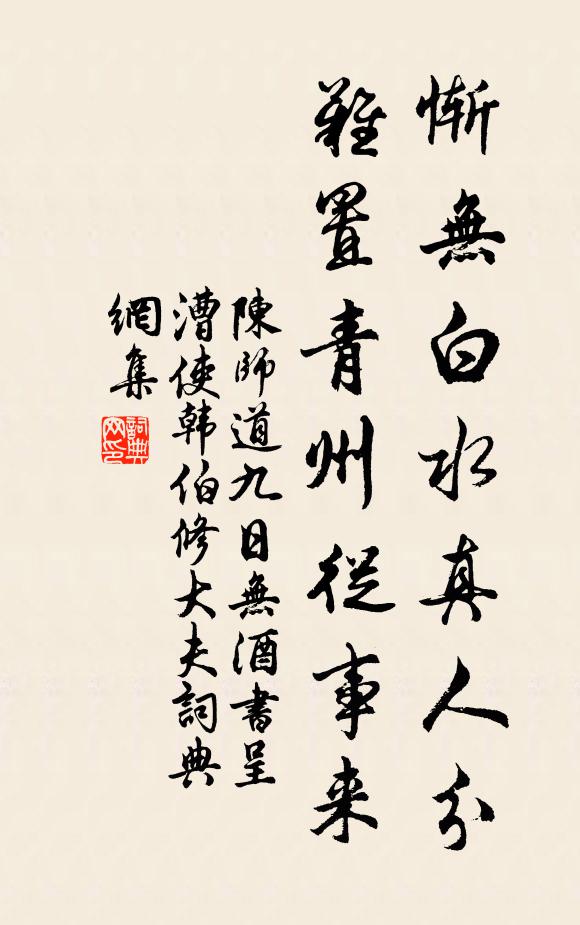 慚無白水真人分
難置青州從事来
陳師道九日無酒書呈
漕使韩伯修大夫詞典
網集
詞典
网印